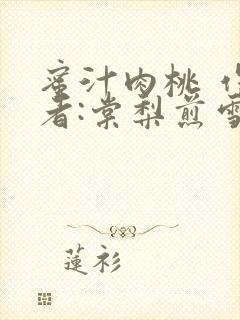 蜜汁肉桃 作
者:棠梨煎雪
蓮衫